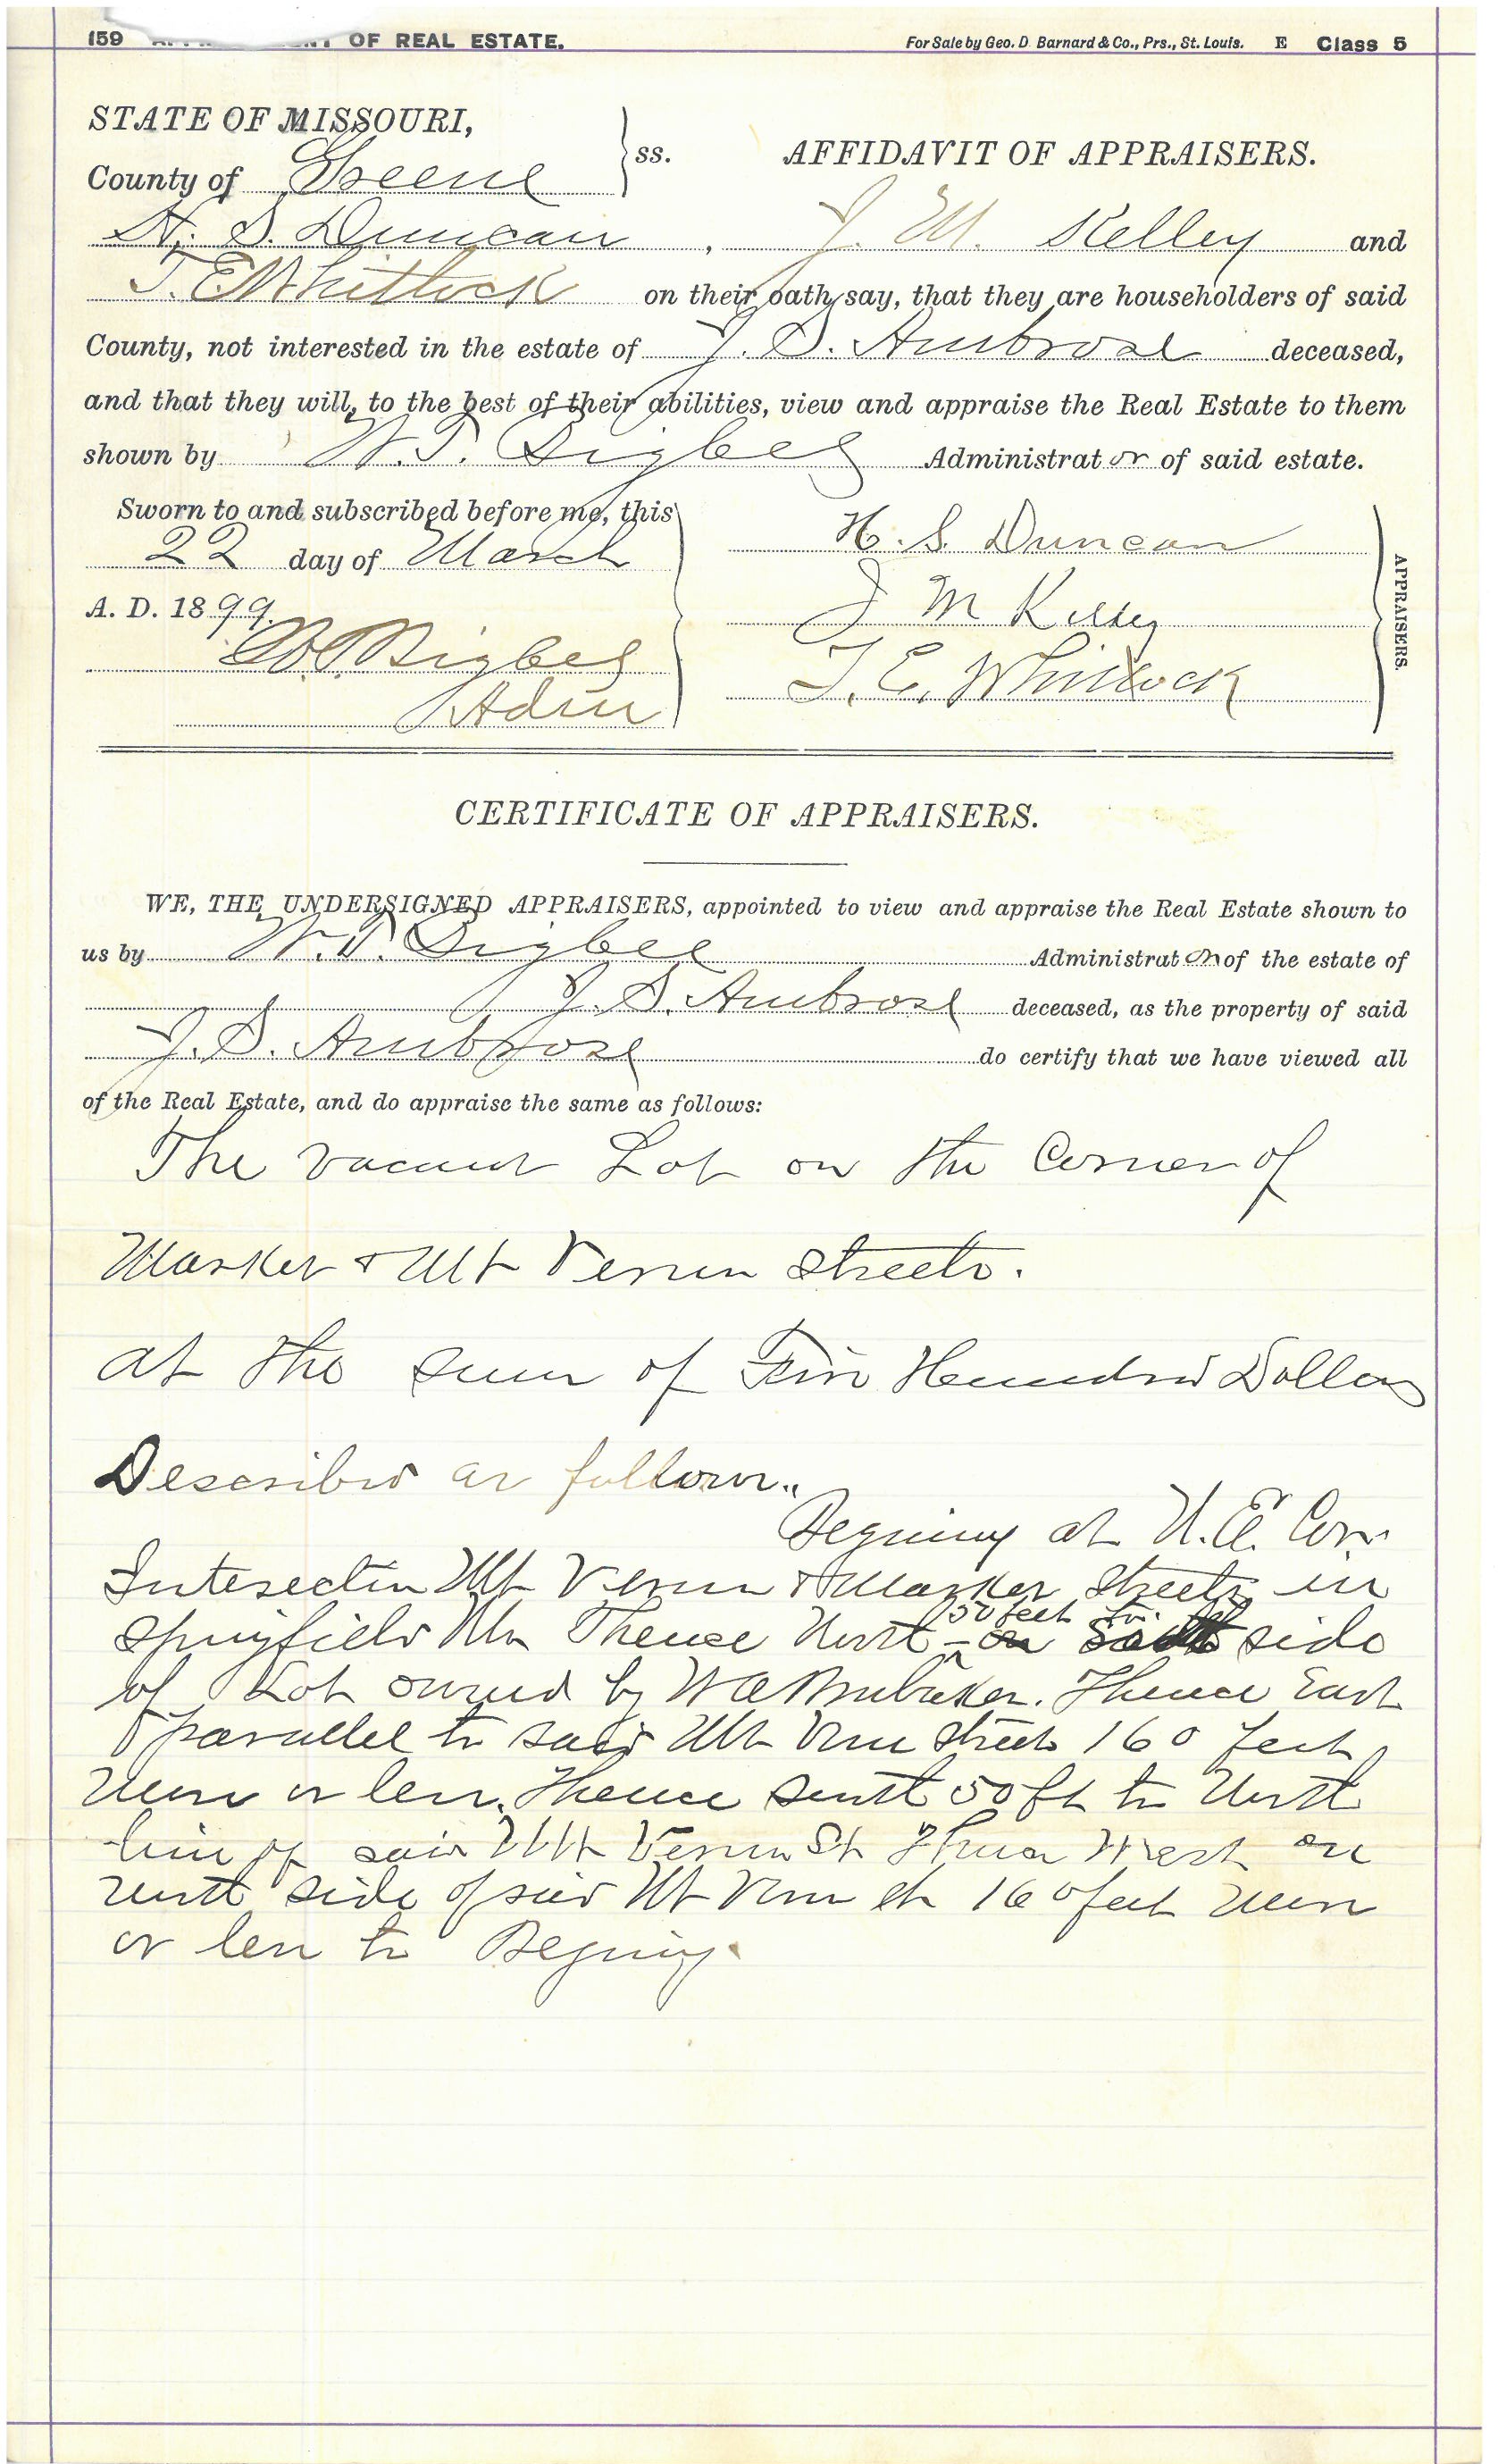 159 OF REAL ESTATE. For Sale by Geo. D. Barnard & Co., Prs., St. Louis. E Class 5
STATE OF MISSOURI,
County of Greene } ss. AFFIDAVIT OF APPRAISERS.
H. S. Duncan, J. M. Kelley and
T. E Whitlock on their oath say, that they are householders of said
County, not interested in the estate of J. S. Ambrose deceased,
and that they will, to the best of their abilities, view and appraise the Real Estate to them
shown by W. T. Bigbee Administrator of said estate.
Sworn to and subscribed before me, this
22 day of March
A. D. 1899.
Bigbee
Adm
H. S. Duncan
J M Kelley
T. E. Whitlock
APPRAISERS.
CERTIFICATE OF APPRAISERS.
WE, THE UNDERSIGNED APPRAISERS, appointed to view and appraise the Real Estate shown to
us by W. T. Bigbee Administrator of the estate of
J. S. Ambrose deceased, as the property of said
J. S. Ambrose do certify that we have viewed all
of the Real Estate, and do appraise the same as follows:
The vacant Lot on the Corner of
Market & Mt Vernon Streets.
at the sum of Five Hundred Dollars
Described as follows..
Begining at N.E. Cor.
Intersection Mt Vernon & Market Streets in
Springfield Mo Thence North 50 feet to side
of Lot owned by W A Brubaker. Thence East
parallel to said Mt Vernon Streets 160 feet
more or less, Thence south 50 ft to North
line of said Mt Vernon St Thence West on
north side of said Mt Vernon St 160 feet more
or less to Begining.